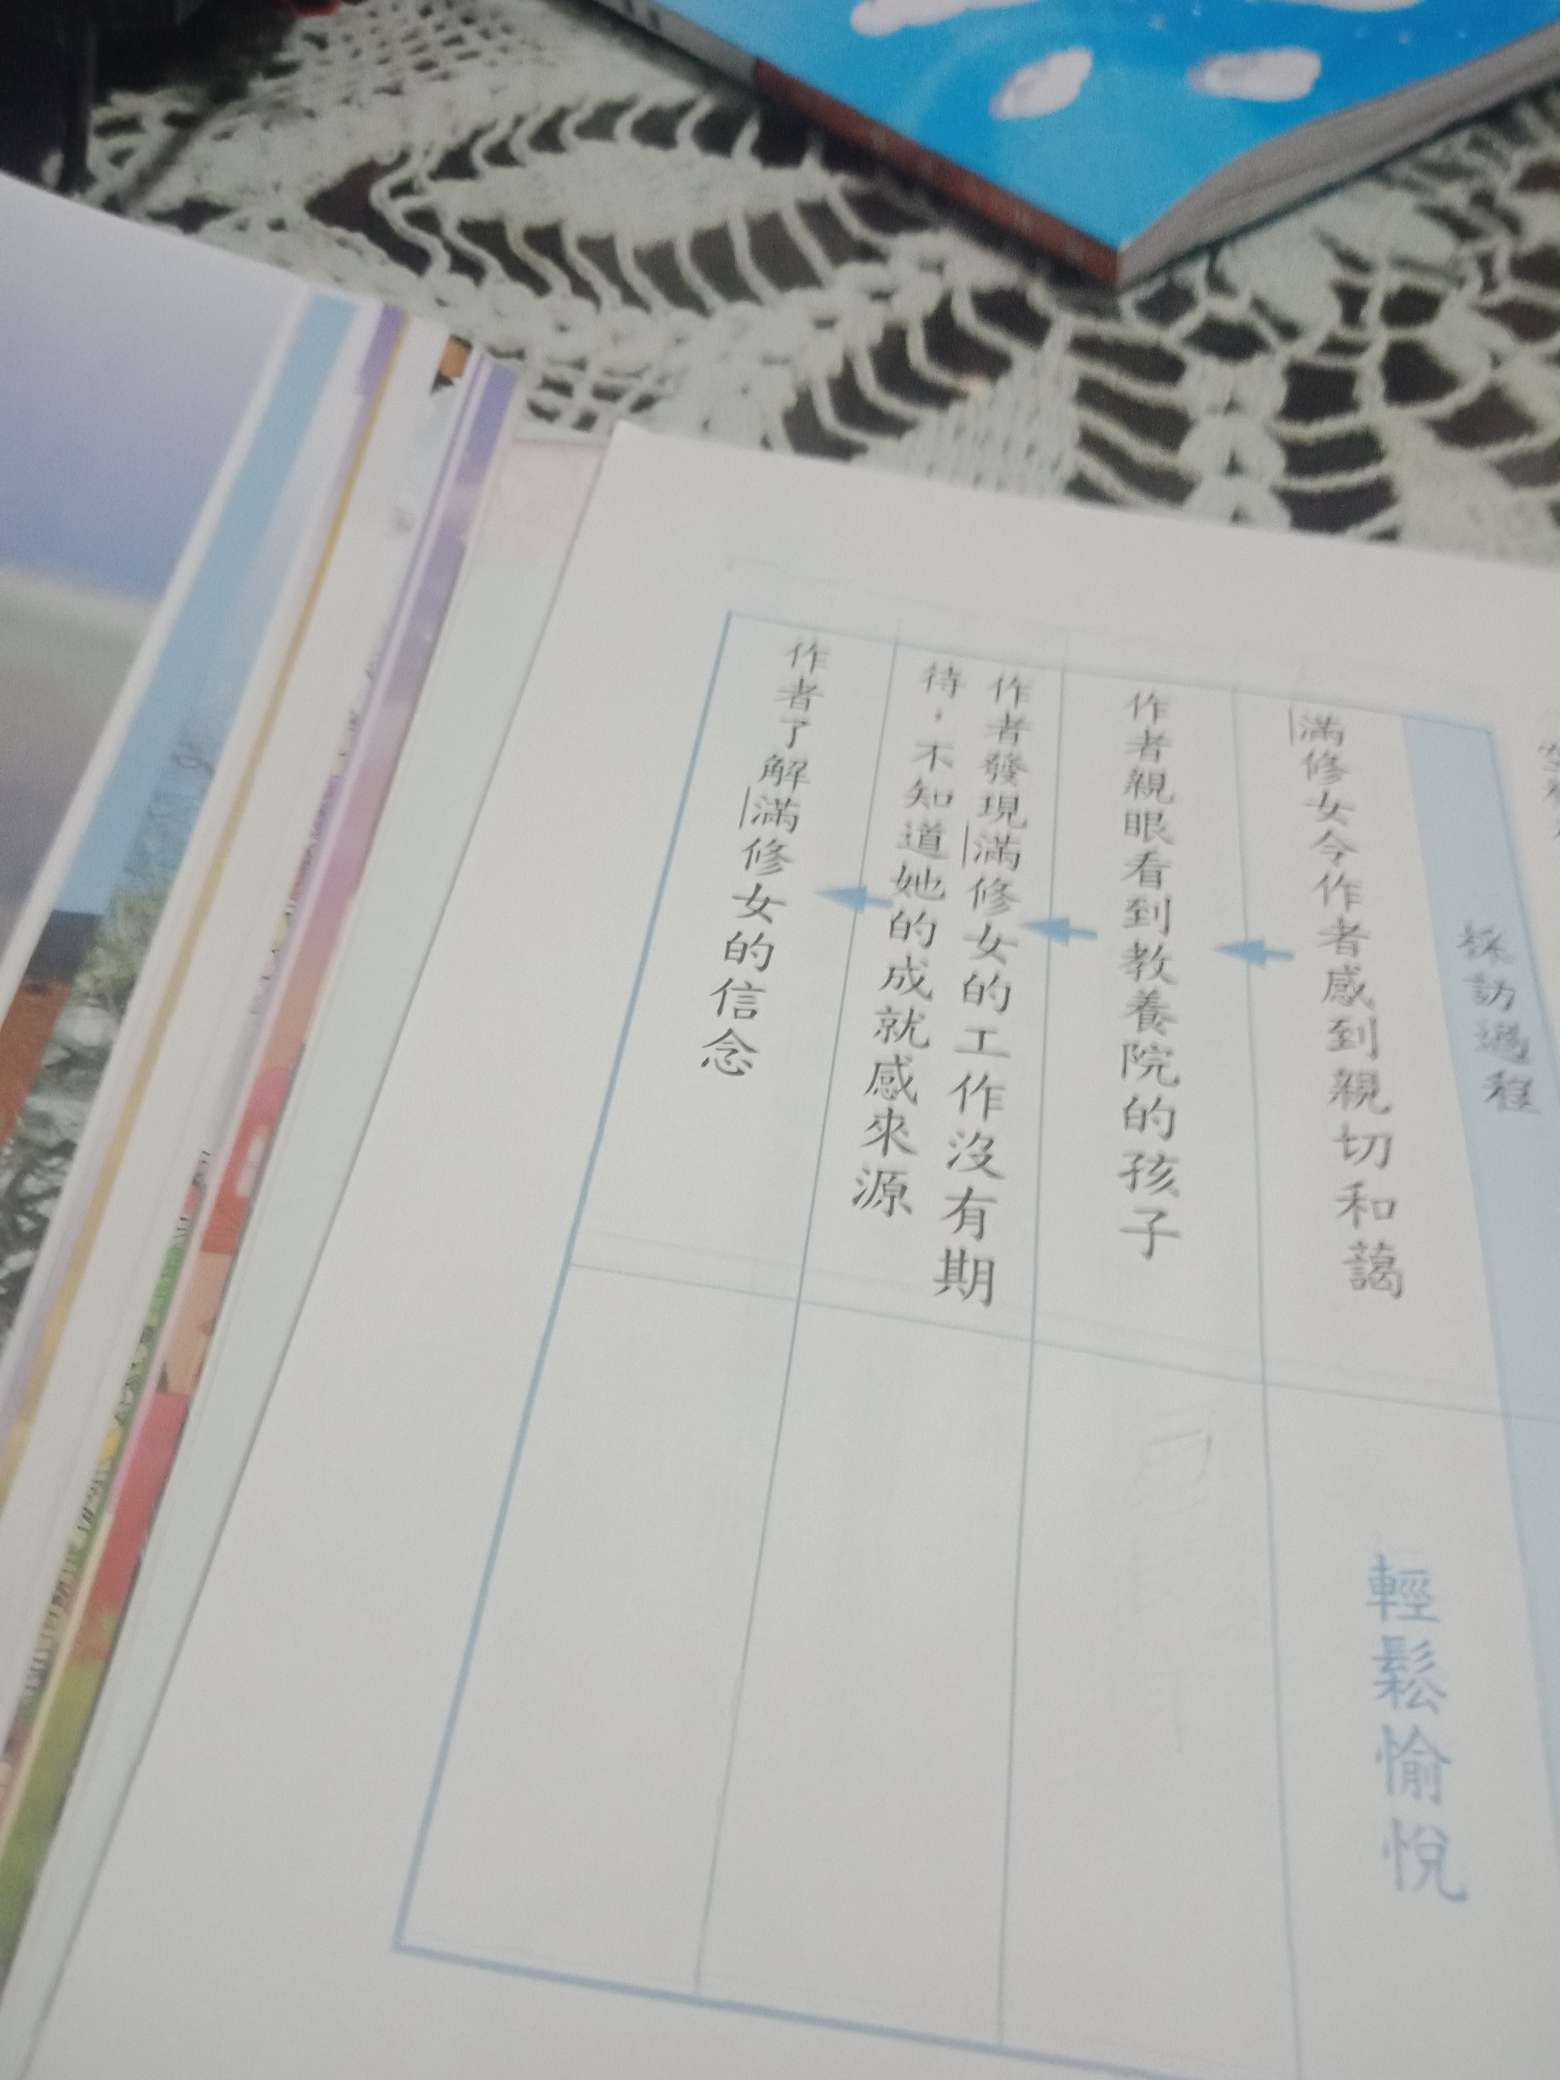 採訪過程
滿修女令作者感到親切和藹
輕鬆愉悅
作者親眼看到教養院的孩子
作者發現滿修女的工作沒有期
待，不知道她的成就感來源
作者了解滿修女的信念